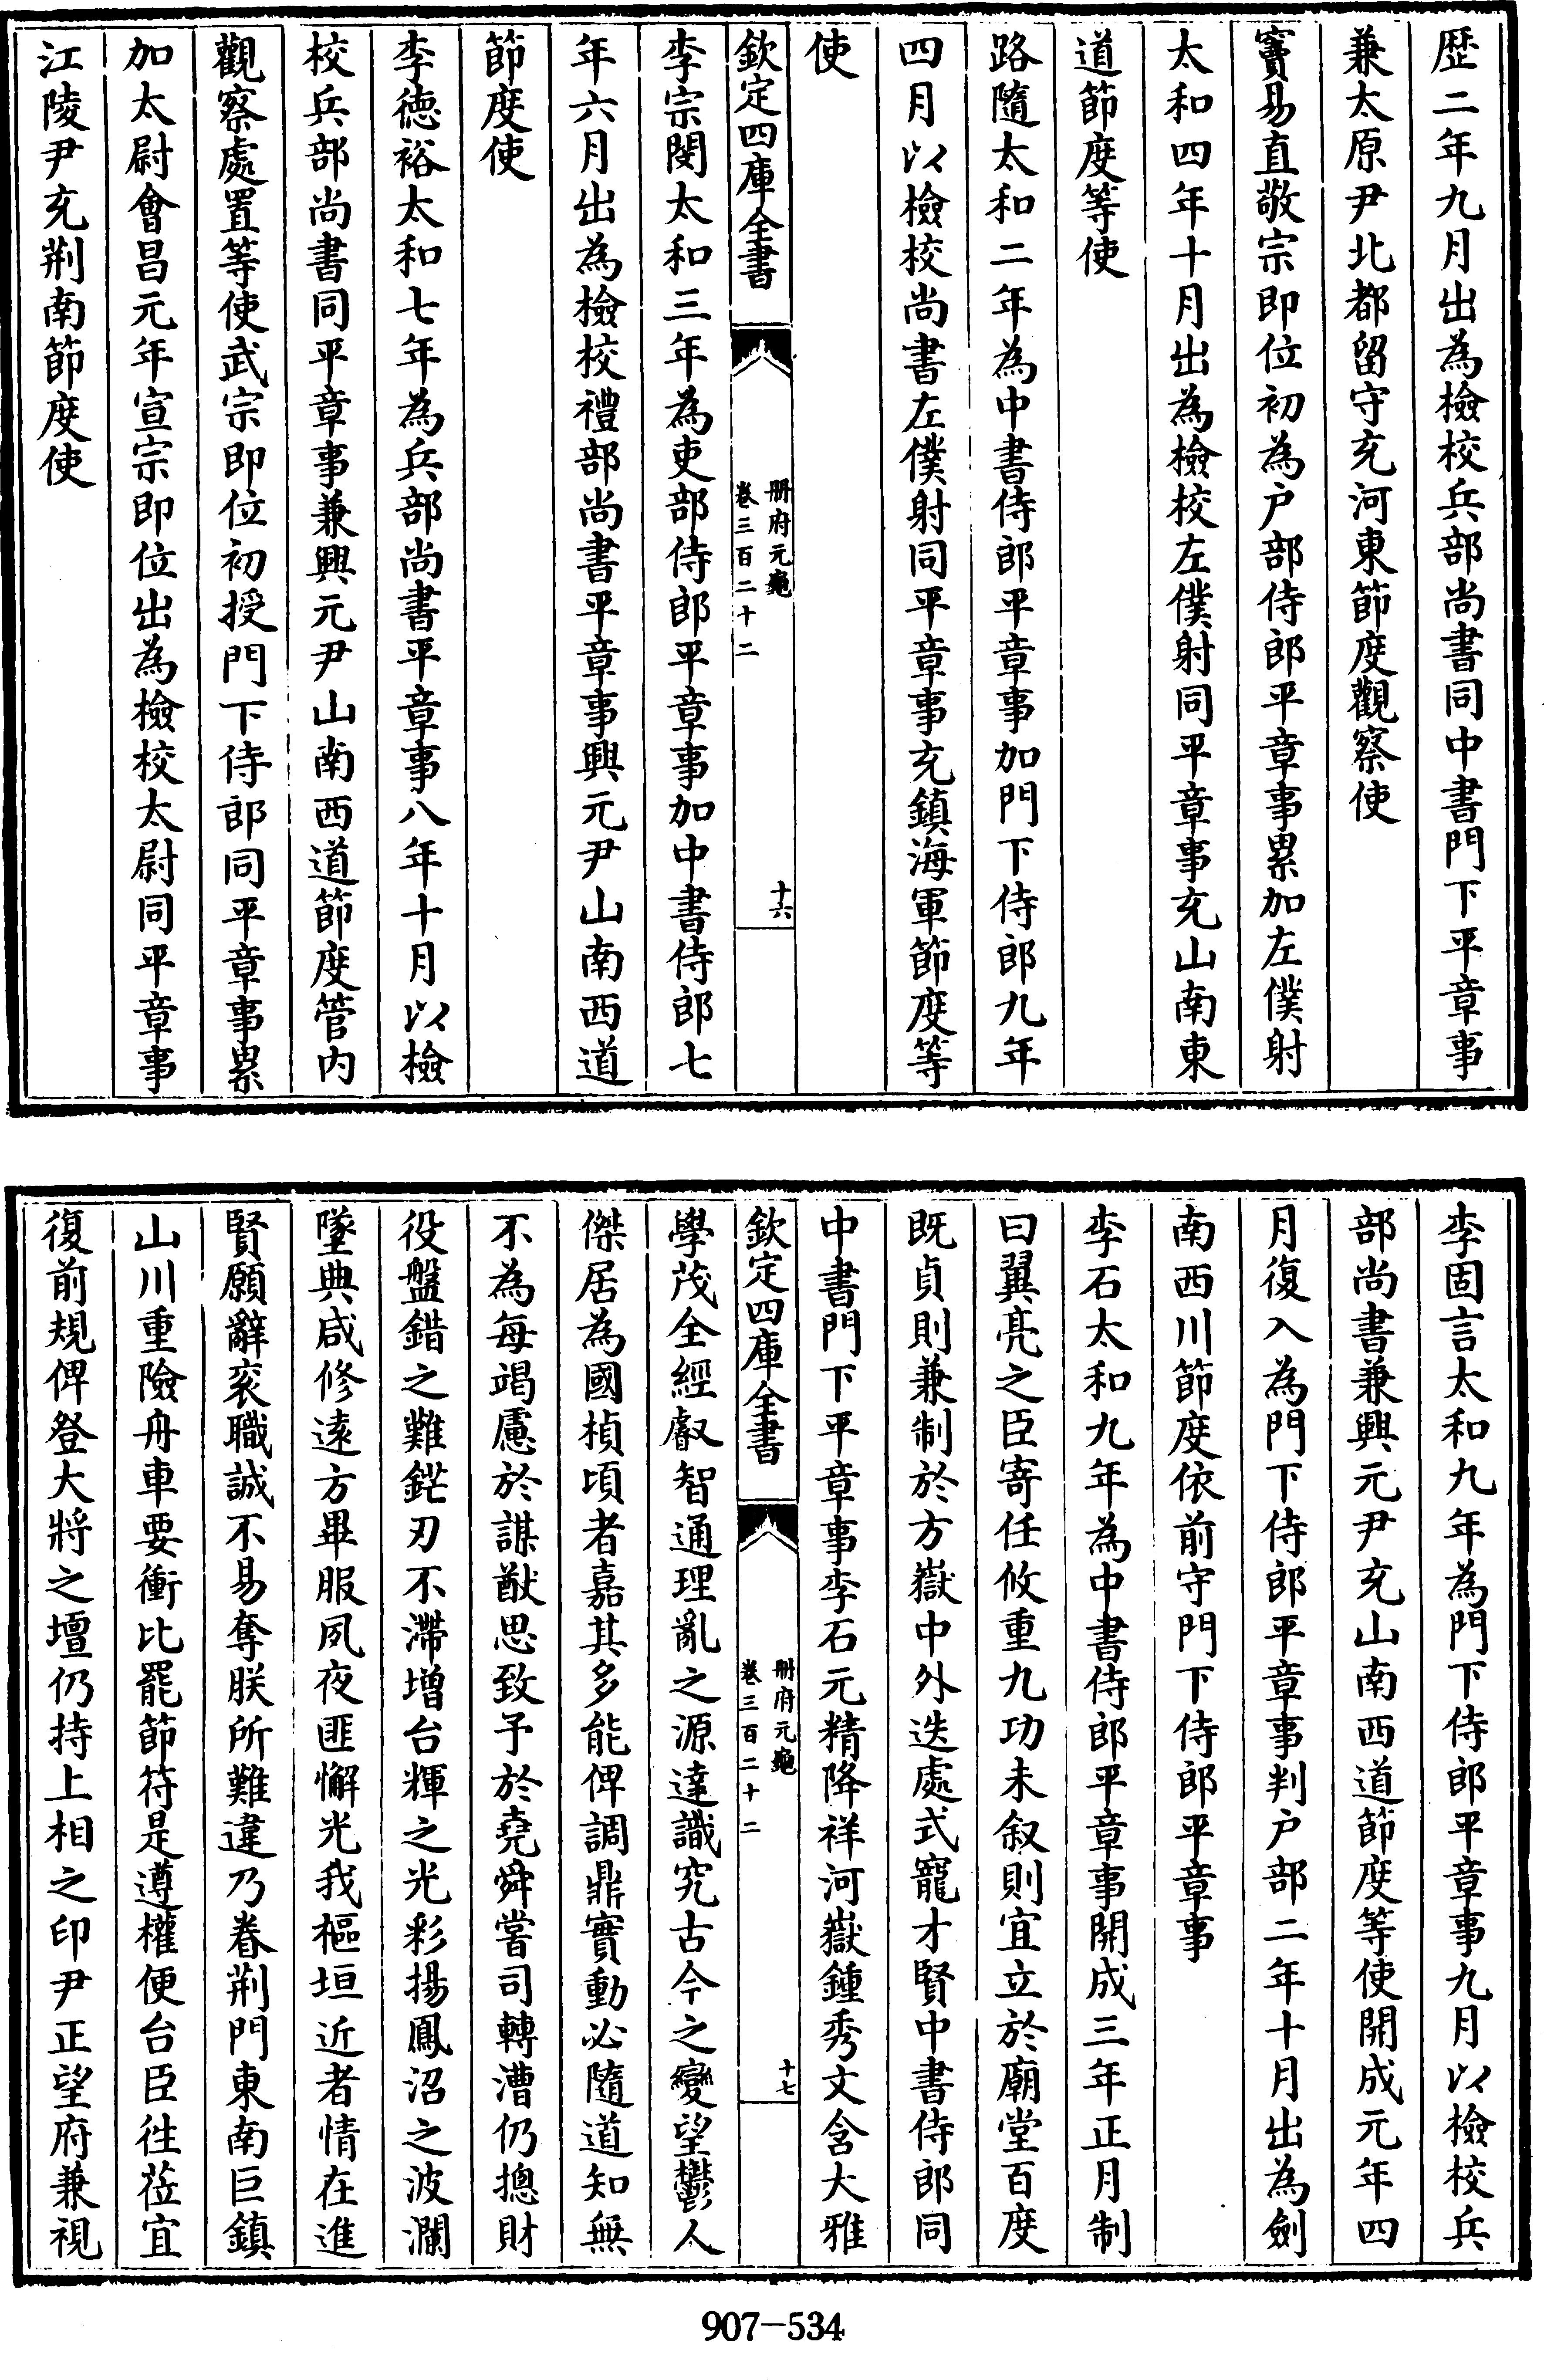 歴二年九月出為檢校兵部尚書同中書門下平章事
兼太原尹北都留守充河東節度觀察使
竇易直敬宗即位初為户部侍郎平章事累加左僕射
太和四年十月出為檢校左僕射同平章事充山南東
道節度等使
路隨太和二年為中書侍郎平章事加門下侍郎九年
四月以檢校尚書左僕射同平章事充鎮海軍節度等
使
欽定四庫全書
册府元龜
卷三百二十二
十六
李宗閔太和三年為吏部侍郎平章事加中書侍郎七
年六月出為檢校禮部尚書平章事興元尹山南西道
節度使
李德裕太和七年為兵部尚書平章事八年十月以檢
校兵部尚書同平章事兼興元尹山南西道節度管内
觀察處置等使武宗即位初授門下侍郎同平章事累
加太尉會昌元年宣宗即位出為檢校太尉同平章事
江陵尹充荆南節度使
李固言太和九年為門下侍郎平章事九月以檢校兵
部尚書兼興元尹充山南西道節度等使開成元年四
月復入為門下侍郎平章事判户部二年十月出為劍
南西川節度依前守門下侍郎平章事
李石太和九年為中書侍郎平章事開成三年正月制
曰翼亮之臣寄任攸重九功未叙則宜立於廟堂百度
既貞則兼制於方嶽中外迭處式寵才賢中書侍郎同
中書門下平章事李石元精降祥河嶽鍾秀文含大雅
欽定四庫全書
册府元龜
卷三百二十二
十七
學茂全經叡智通理亂之源達識究古今之變望鬱人
傑居為國楨頃者嘉其多能俾調鼎實動必隨道知無
不為每竭慮於謀猷思致予於堯舜嘗司轉漕仍摠財
役盤錯之難鋩刃不滯增台輝之光彩揚鳳沼之波瀾
墜典咸修遠方畢服夙夜匪懈光我樞垣近者情在進
賢願辭衮職誠不易奪朕所難違乃眷荆門東南巨鎮
山川重險舟車要衝比罷節符是遵權便台臣往莅宜
復前規俾登大將之壇仍持上相之印尹正望府兼視
907-534